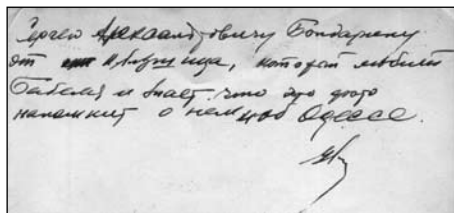 Сергею Александровичу Бондареву
от одессита, который любит
Бабеля и знает что это фото
напомнит о нем и об Одессе.